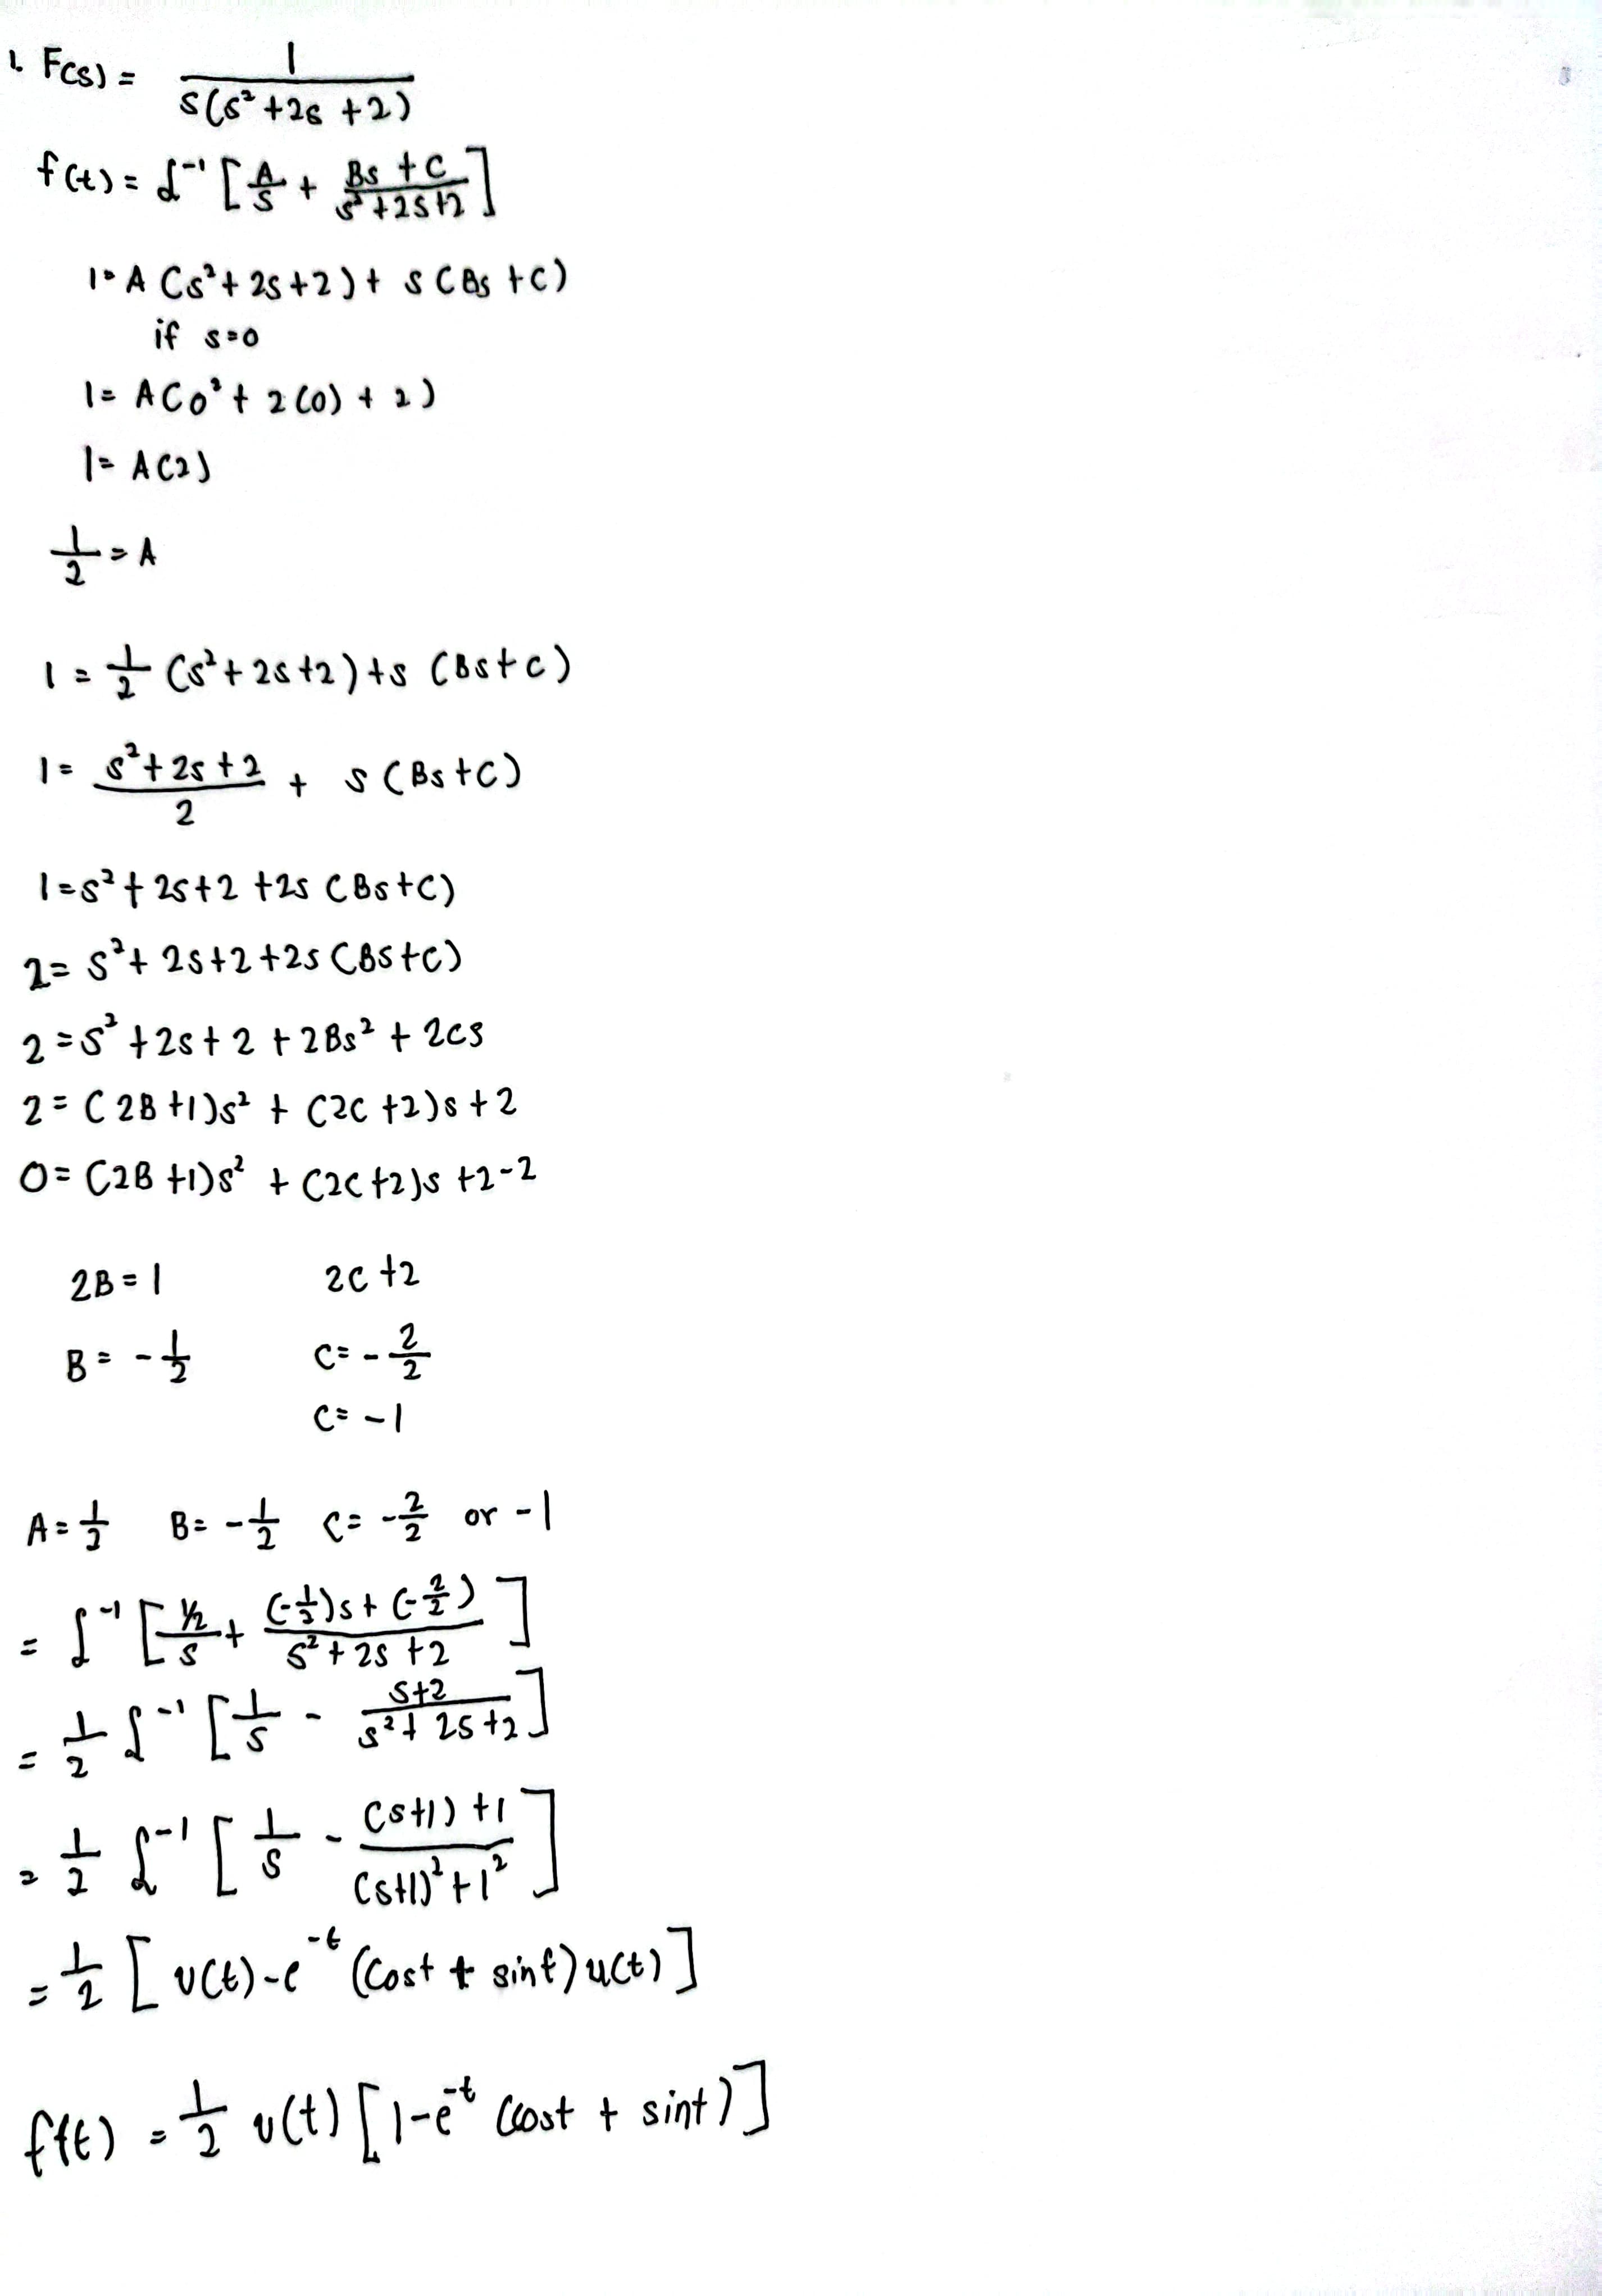 1. F(s) = 1 / s(s² + 2s + 2)
f(t) = ℒ⁻¹ [A/s + Bs + C / s² + 2s + 2]
1 = A (s² + 2s + 2) + s (Bs + C)
if s = 0
1 = A (0² + 2(0) + 2)
1 = A(2)
1/2 = A
1 = 1/2 (s² + 2s + 2) + s (Bs + C)
1 = s² + 2s + 2 / 2 + s (Bs + C)
1 = s² + 2s + 2 + 2s (Bs + C)
2 = s² + 2s + 2 + 2s (Bs + C)
2 = s² + 2s + 2 + 2Bs² + 2Cs
2 = (2B + 1)s² + (2C + 2)s + 2
0 = (2B + 1)s² + (2C + 2)s + 2 - 2
2B = 1 2C + 2
B = - 1/2 C = - 2/2
C = -1
A = 1/2 B = - 1/2 C = - 2/2 or -1
= ℒ⁻¹ [1/2 / s + (-1/2)s + (-2/2) / s² + 2s + 2]
= 1/2 ℒ⁻¹ [1/s - s+2 / s² + 2s + 2]
= 1/2 ℒ⁻¹ [1/s - (s+1) + 1 / (s+1)² + 1²]
= 1/2 [u(t) - e⁻ᵗ (cost + sint) u(t)]
f(t) = 1/2 u(t) [1 - e⁻ᵗ (cost + sint)]